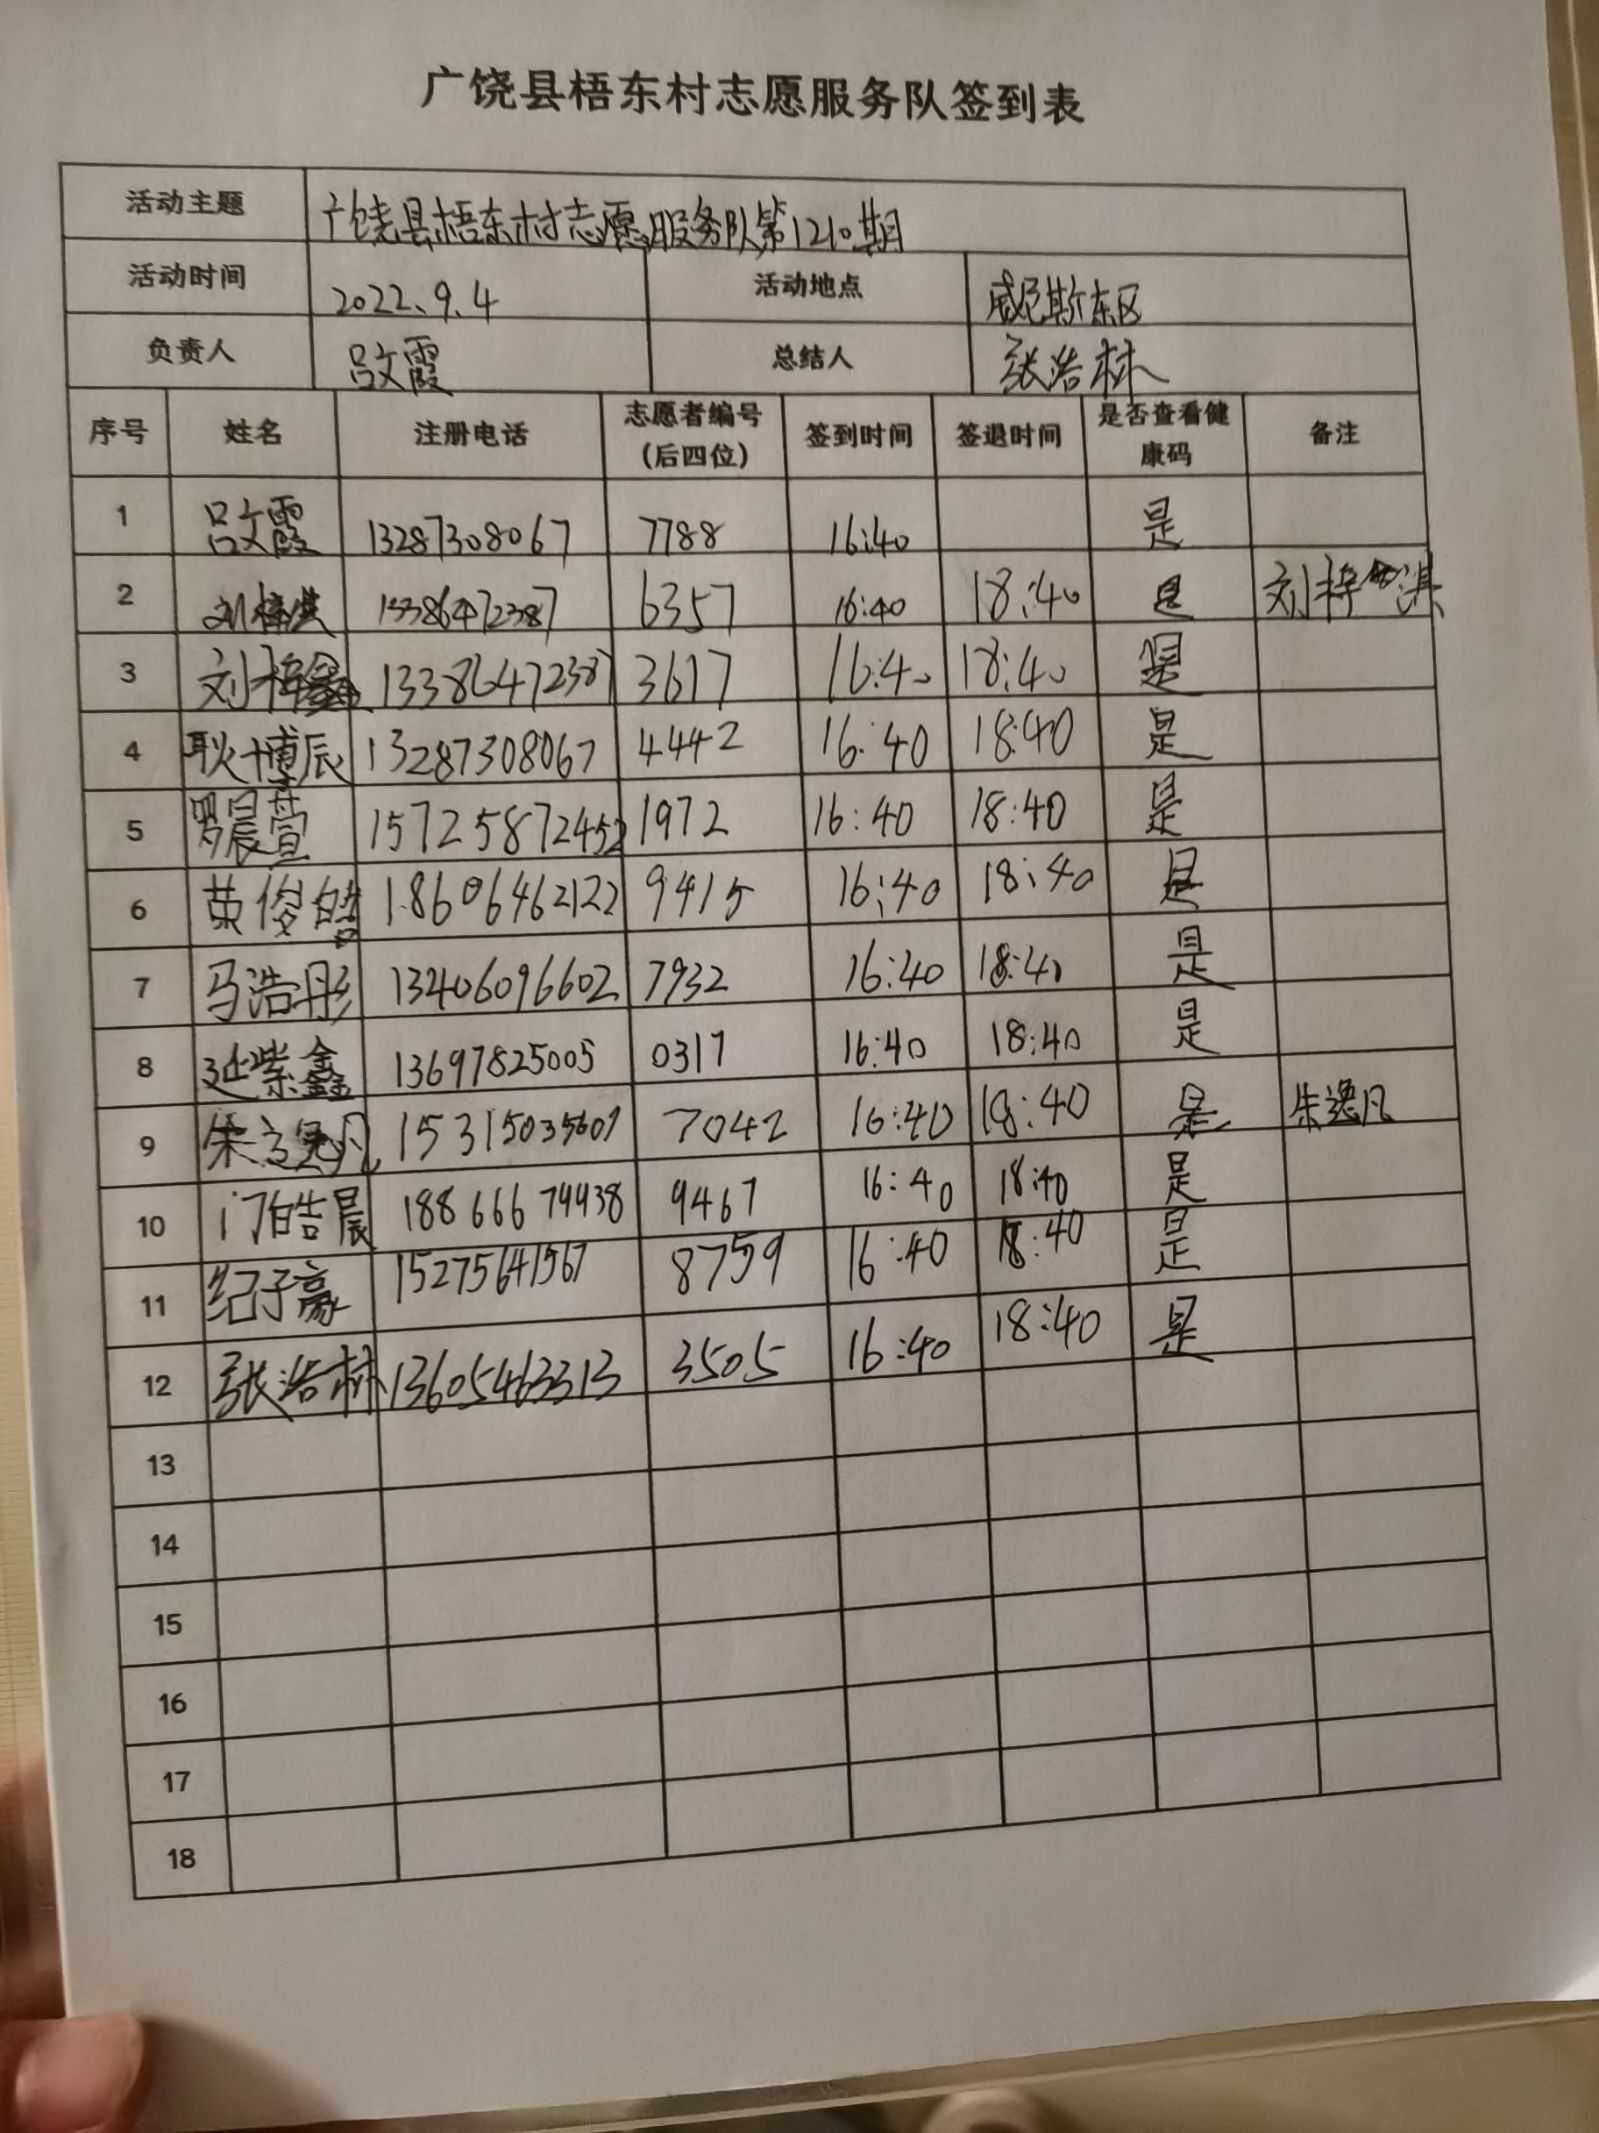 广饶县梧东村志愿服务队签到表
活动主题 广饶县梧东村志愿服务队第1210期
活动时间 2022.9.4 活动地点 威尼斯东区
负责人 吕文霞 总结人 张浩林
序号 姓名 注册电话 志愿者编号(后四位) 签到时间 签退时间 是否查看健康码 备注
1 吕文霞 13287308067 7788 16:40 是
2 刘梓淇 13386472387 6357 16:40 18:40 是 刘梓淇
3 刘梓鑫 13386472387 3617 16:40 18:40 是
4 耿博宸 13287308067 4442 16:40 18:40 是
5 罗晨萱 15725872452 1972 16:40 18:40 是
6 荣俊皓 18606462122 9415 16:40 18:40 是
7 马浩彤 13406096602 7932 16:40 18:40 是
8 延紫鑫 13697825005 0317 16:40 18:40 是
9 朱逸凡 15315035607 7042 16:40 18:40 是 朱逸凡
10 门皓晨 18866674938 9467 16:40 18:40 是
11 纪子豪 15275641567 8759 16:40 18:40 是
12 张浩林 13605463313 3505 16:40 18:40 是
13
14
15
16
17
18